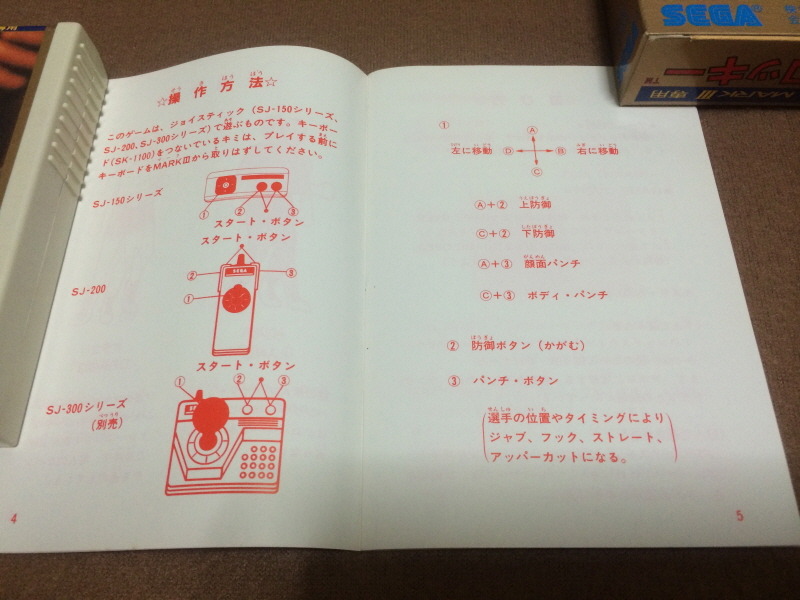 ☆操作方法☆
このゲームは、ジョイスティック(SJ-150シリーズ、
SJ-200、SJ-300シリーズ)で遊ぶものです。キーボー
ド(SK-1100)をつないでいるキミは、プレイする前に
キーボードをMARKⅢから取りはずしてください。
SJ-150シリーズ
① ② ③
スタート・ボタン
スタート・ボタン
② SEGA ③
①
SJ-200
スタート・ボタン
① ② ③
SJ-300シリーズ
(別売)
4
①
Ⓐ
左に移動 Ⓓ Ⓑ 右に移動
Ⓒ
Ⓐ+② 上防御
Ⓒ+② 下防御
Ⓐ+③ 顔面パンチ
Ⓒ+③ ボディ・パンチ
② 防御ボタン(かがむ)
③ パンチ・ボタン
(選手の位置やタイミングにより
ジャブ、フック、ストレート、
アッパーカットになる。)
5
SEGA®
ロッキー™
MARKⅢ専用